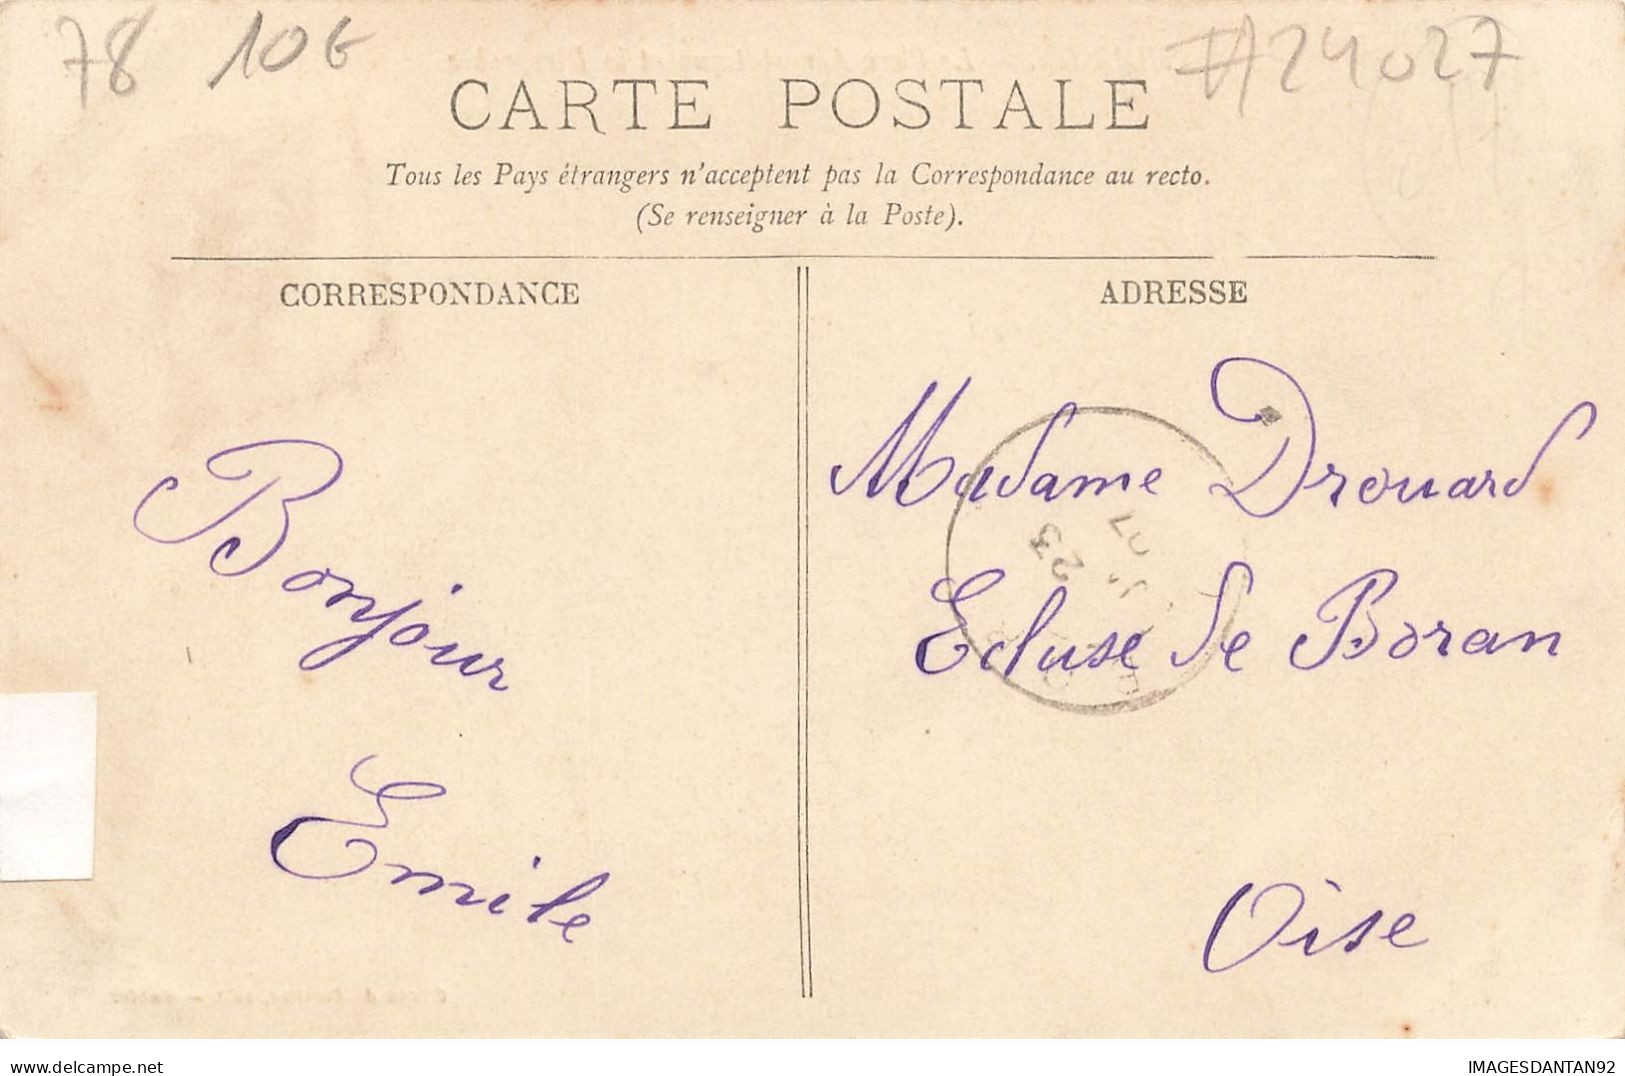 78 10€ #24027
CARTE POSTALE
Tous les Pays étrangers n'acceptent pas la Correspondance au recto.
(Se renseigner à la Poste).
CORRESPONDANCE
Bonjour
Emile
ADRESSE
Madame Drouard
Ecluse de Boran
Oise
23
07
IMAGESDANTAN92